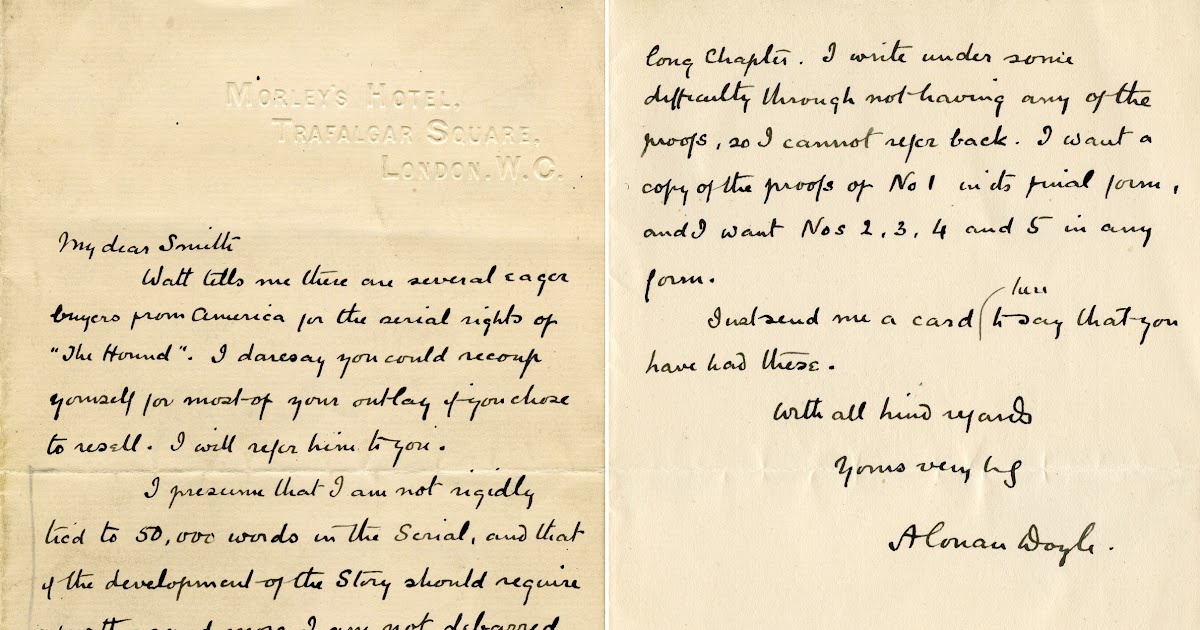 MORLEY'S HOTEL,
TRAFALGAR SQUARE,
LONDON. W.C.
My dear Smith
Watt tells me there are several eager
buyers from America for the serial rights of
"The Hound". I daresay you could recoup
yourself for most of your outlay if you chose
to resell. I will refer him to you.
I presume that I am not rigidly
tied to 50,000 words in the Serial, and that
if the development of the Story should require
more I am not debarred
long Chapter. I write under some
difficulty through not having any of the
proofs, so I cannot refer back. I want a
copy of the proofs of No 1 in its final form,
and I want Nos 2, 3, 4 and 5 in any
form.
here
Just send me a card ( to say that you
have had these.
With all kind regards
Yours very
A Conan Doyle.